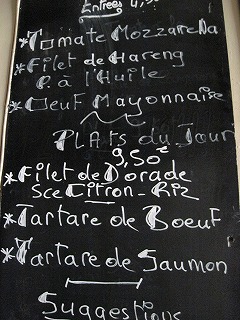 Entrées 4,50
*Tomate Mozzarella
*Filet de Hareng
P. à l'Huile
*Oeuf Mayonnaise
PLATS du Jour
9,50€
*Filet de Dorade
Sce Citron - Riz
*Tartare de Boeuf
*Tartare de Saumon
Suggestions